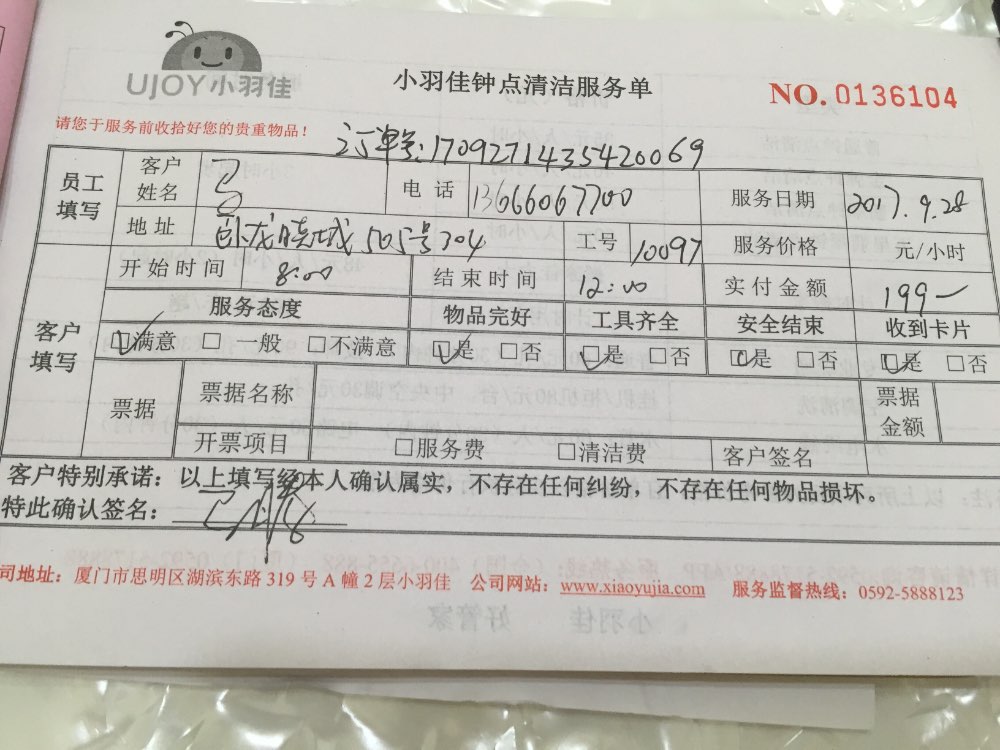 UJOY小羽佳
小羽佳钟点清洁服务单
NO. 0136104
请您于服务前收拾好您的贵重物品！
订单号:1709271435420069
员工填写 客户姓名 电话 13666067700 服务日期 2017.9.28
地址 卧龙晓城505号304 工号 10097 服务价格 元/小时
客户填写 开始时间 8:00 结束时间 12:00 实付金额 199-
服务态度 物品完好 工具齐全 安全结束 收到卡片
☑满意 □一般 □不满意 ☑是 □否 ☑是 □否 ☑是 □否 ☑是 □否
票据 票据名称 票据金额
开票项目 □服务费 □清洁费 客户签名
客户特别承诺：以上填写经本人确认属实，不存在任何纠纷，不存在任何物品损坏。
特此确认签名：
司地址：厦门市思明区湖滨东路319号A幢2层小羽佳 公司网站：www.xiaoyujia.com 服务监督热线：0592-5888123